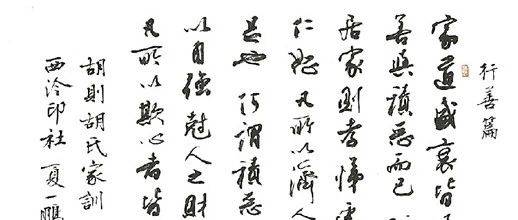 行善篇
家道盛衰皆
善與積惡而已
居家則孝悌處
仁恕凡所以濟人
是也何謂積惡
以自強尅人之財
凡所以欺心者皆
胡則胡氏家訓
西泠印社夏一鵬